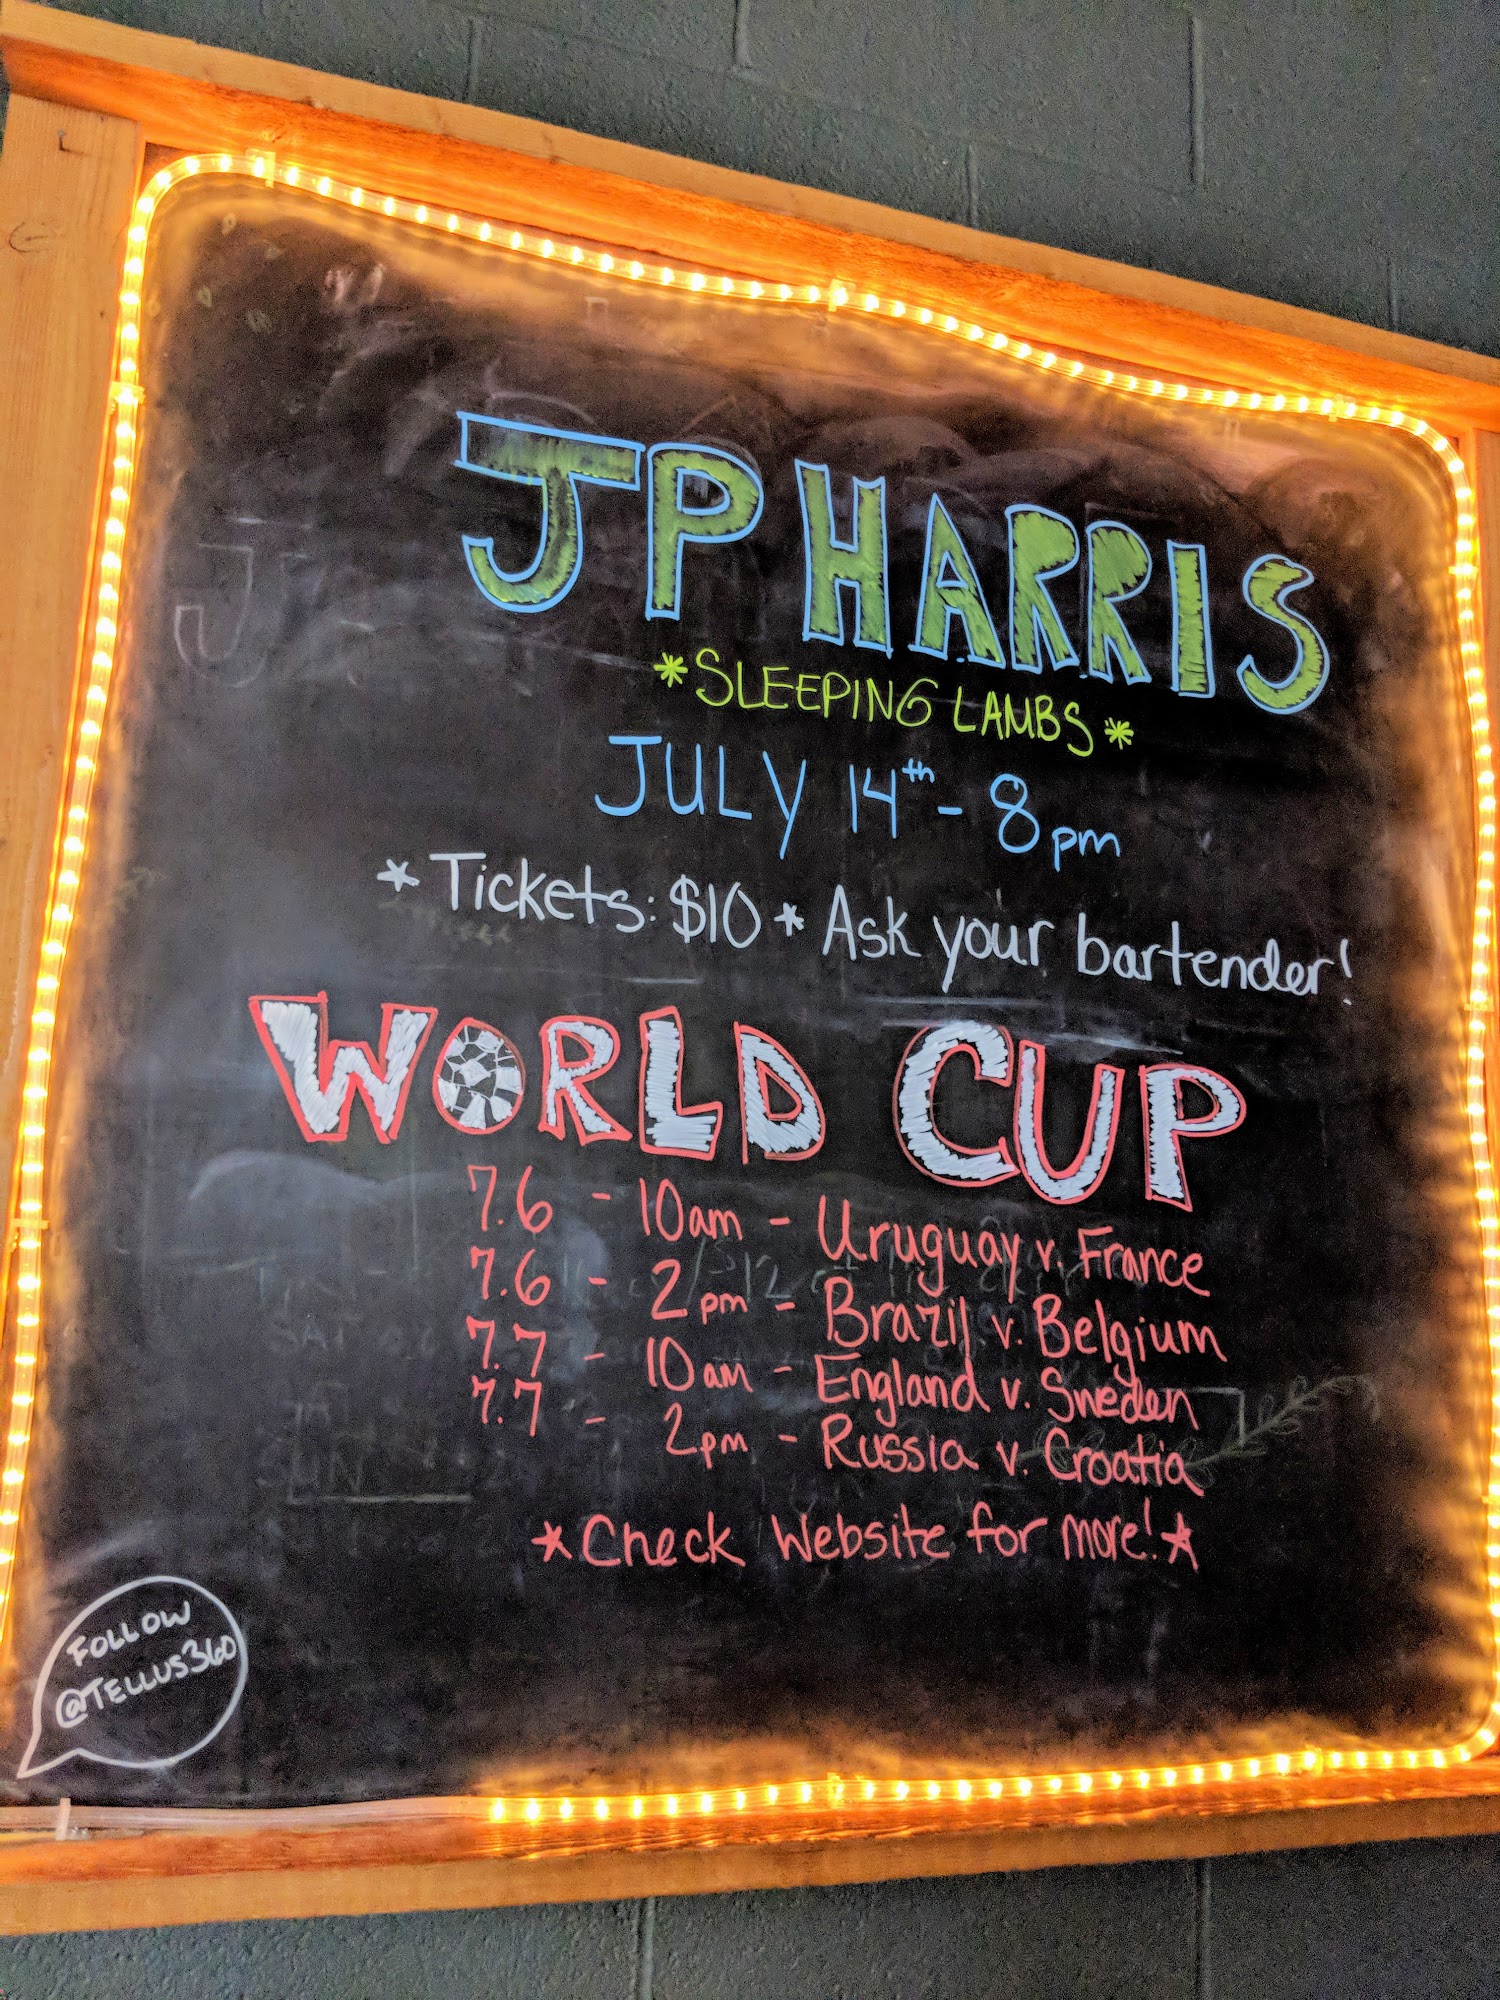 JP HARRIS
*SLEEPING LAMBS*
JULY 14th - 8pm
*Tickets: $10 * Ask your bartender!
WORLD CUP
7.6 - 10am - Uruguay v. France
7.6 - 2pm - Brazil v. Belgium
7.7 - 10am - England v. Sweden
7.7 - 2pm - Russia v. Croatia
★Check Website for more!★
FOLLOW
@TELLUS360